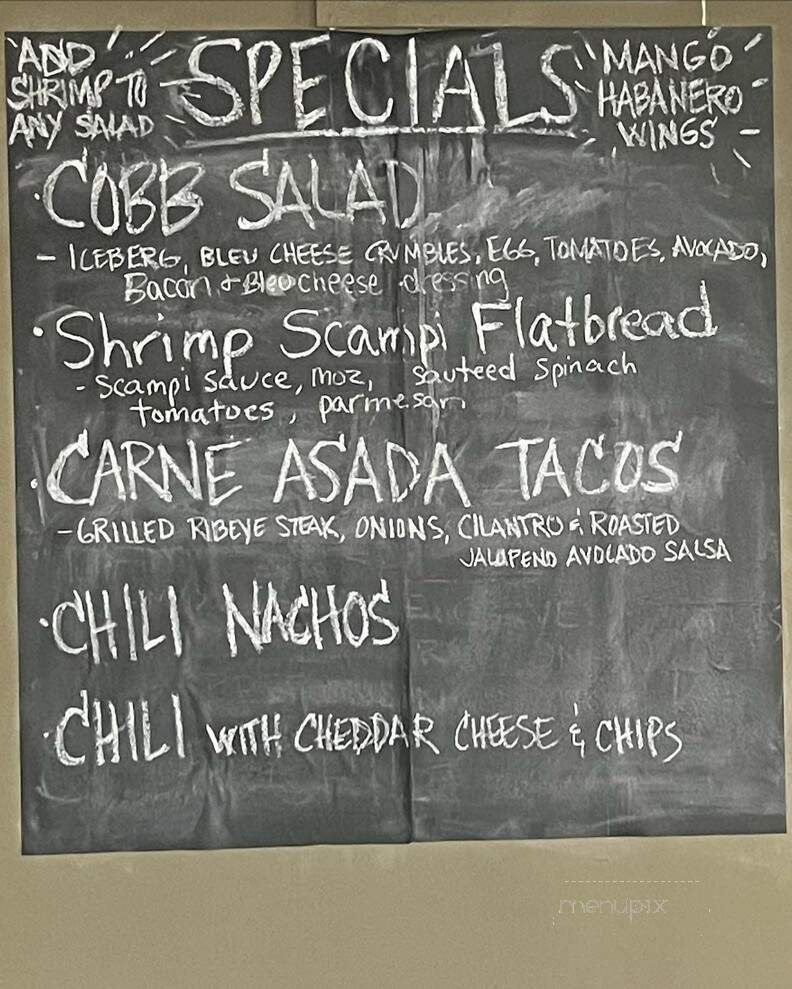 ADD
SHRIMP TO
ANY SALAD
SPECIALS
MANGO
HABANERO
WINGS
• COBB SALAD
- ICEBERG, BLEU CHEESE CRUMBLES, EGG, TOMATOES, AVOCADO,
Bacon + Bleu cheese dressing
• Shrimp Scampi Flatbread
- Scampi sauce, moz, sauteed spinach
tomatoes, parmesan
• CARNE ASADA TACOS
- GRILLED RIBEYE STEAK, ONIONS, CILANTRO & ROASTED
JALAPENO AVOCADO SALSA
• CHILI NACHOS
• CHILI WITH CHEDDAR CHEESE & CHIPS
menupix